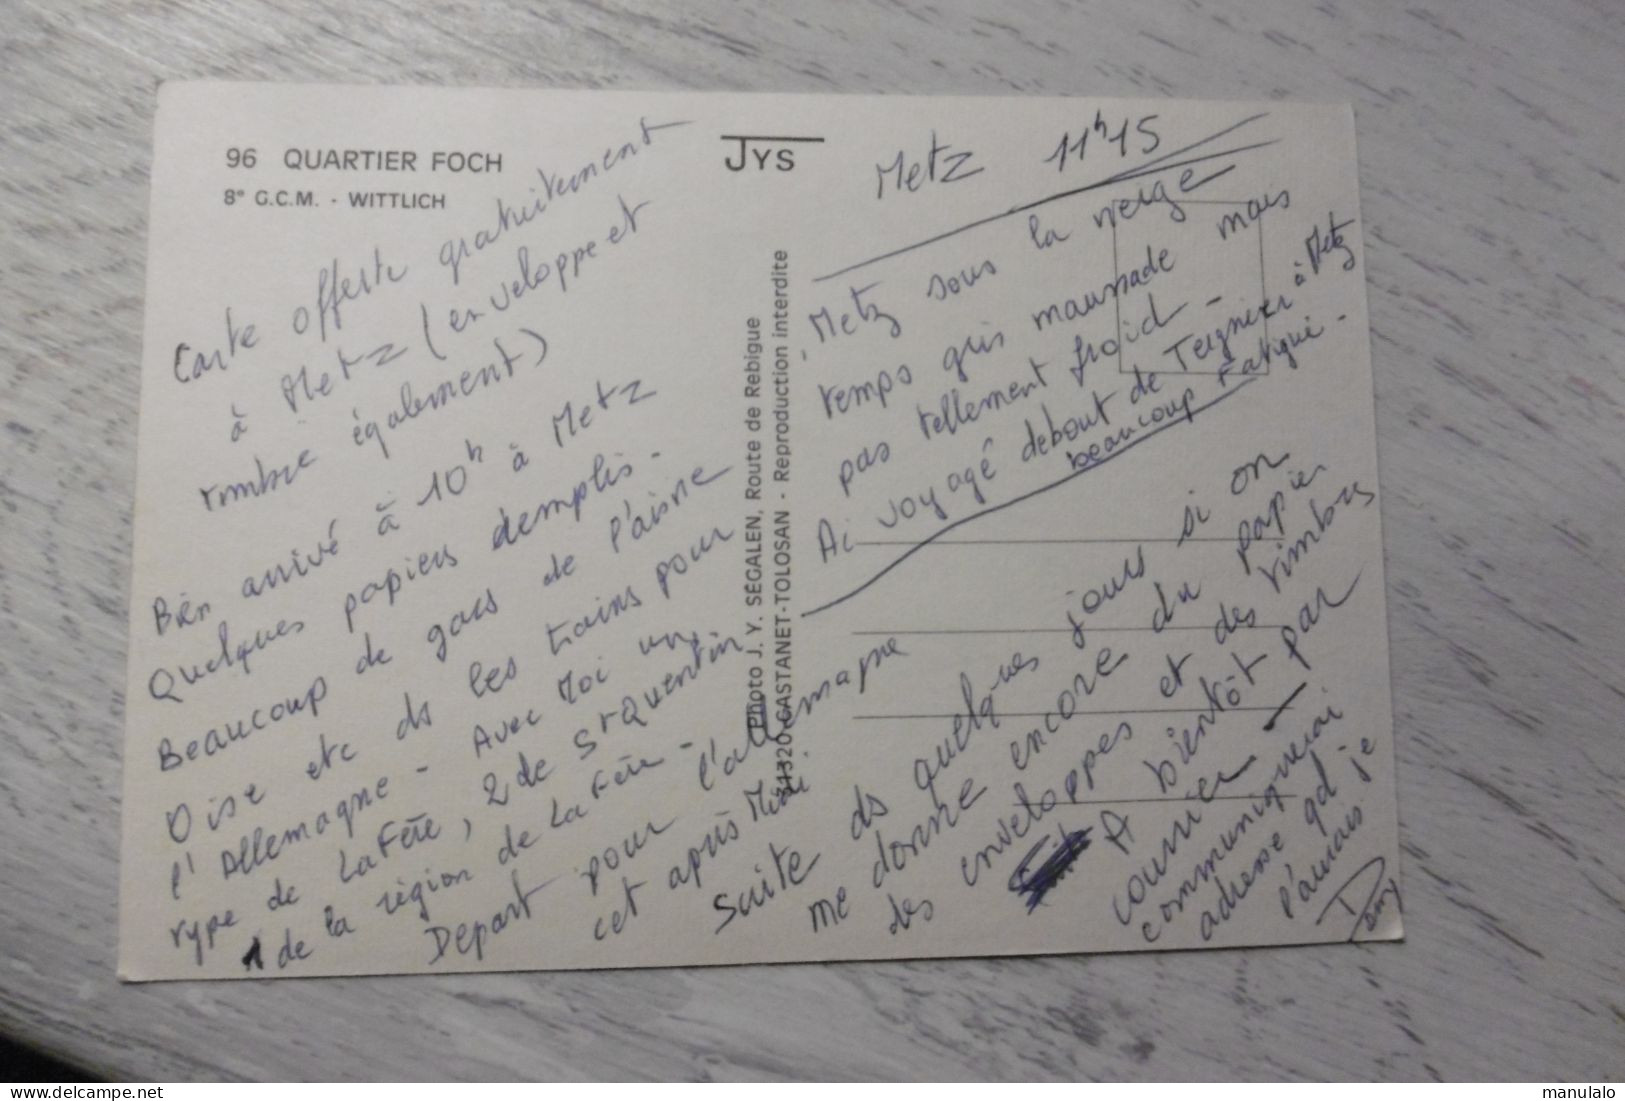 96 QUARTIER FOCH
8e G.C.M. - WITTLICH
JYS
Photo J. Y. SEGALEN, Route de Rebigue
31320 CASTANET-TOLOSAN - Reproduction interdite
Carte offerte gratuitement
à Metz (enveloppe et
timbre également)
Bien arrivé à 10h à Metz
Quelques papiers remplis.
Beaucoup de gars de l'aisne
Oise etc ds les trains pour
l'Allemagne - Avec Moi un
type de LaFère, 2 de St Quentin
1 de la région de La Fère -
Départ pour l'allemagne
cet après Midi
Metz 11h15
Metz sous la neige
temps gris maussade mais
pas tellement froid -
Ai voyagé debout de Tergnier à Metz
beaucoup Fatigué -
Suite ds quelques jours si on
me donne encore du papier
des enveloppes et des timbres
A bientôt par
courrier -
communiquerai
adresse qd je
l'aurais